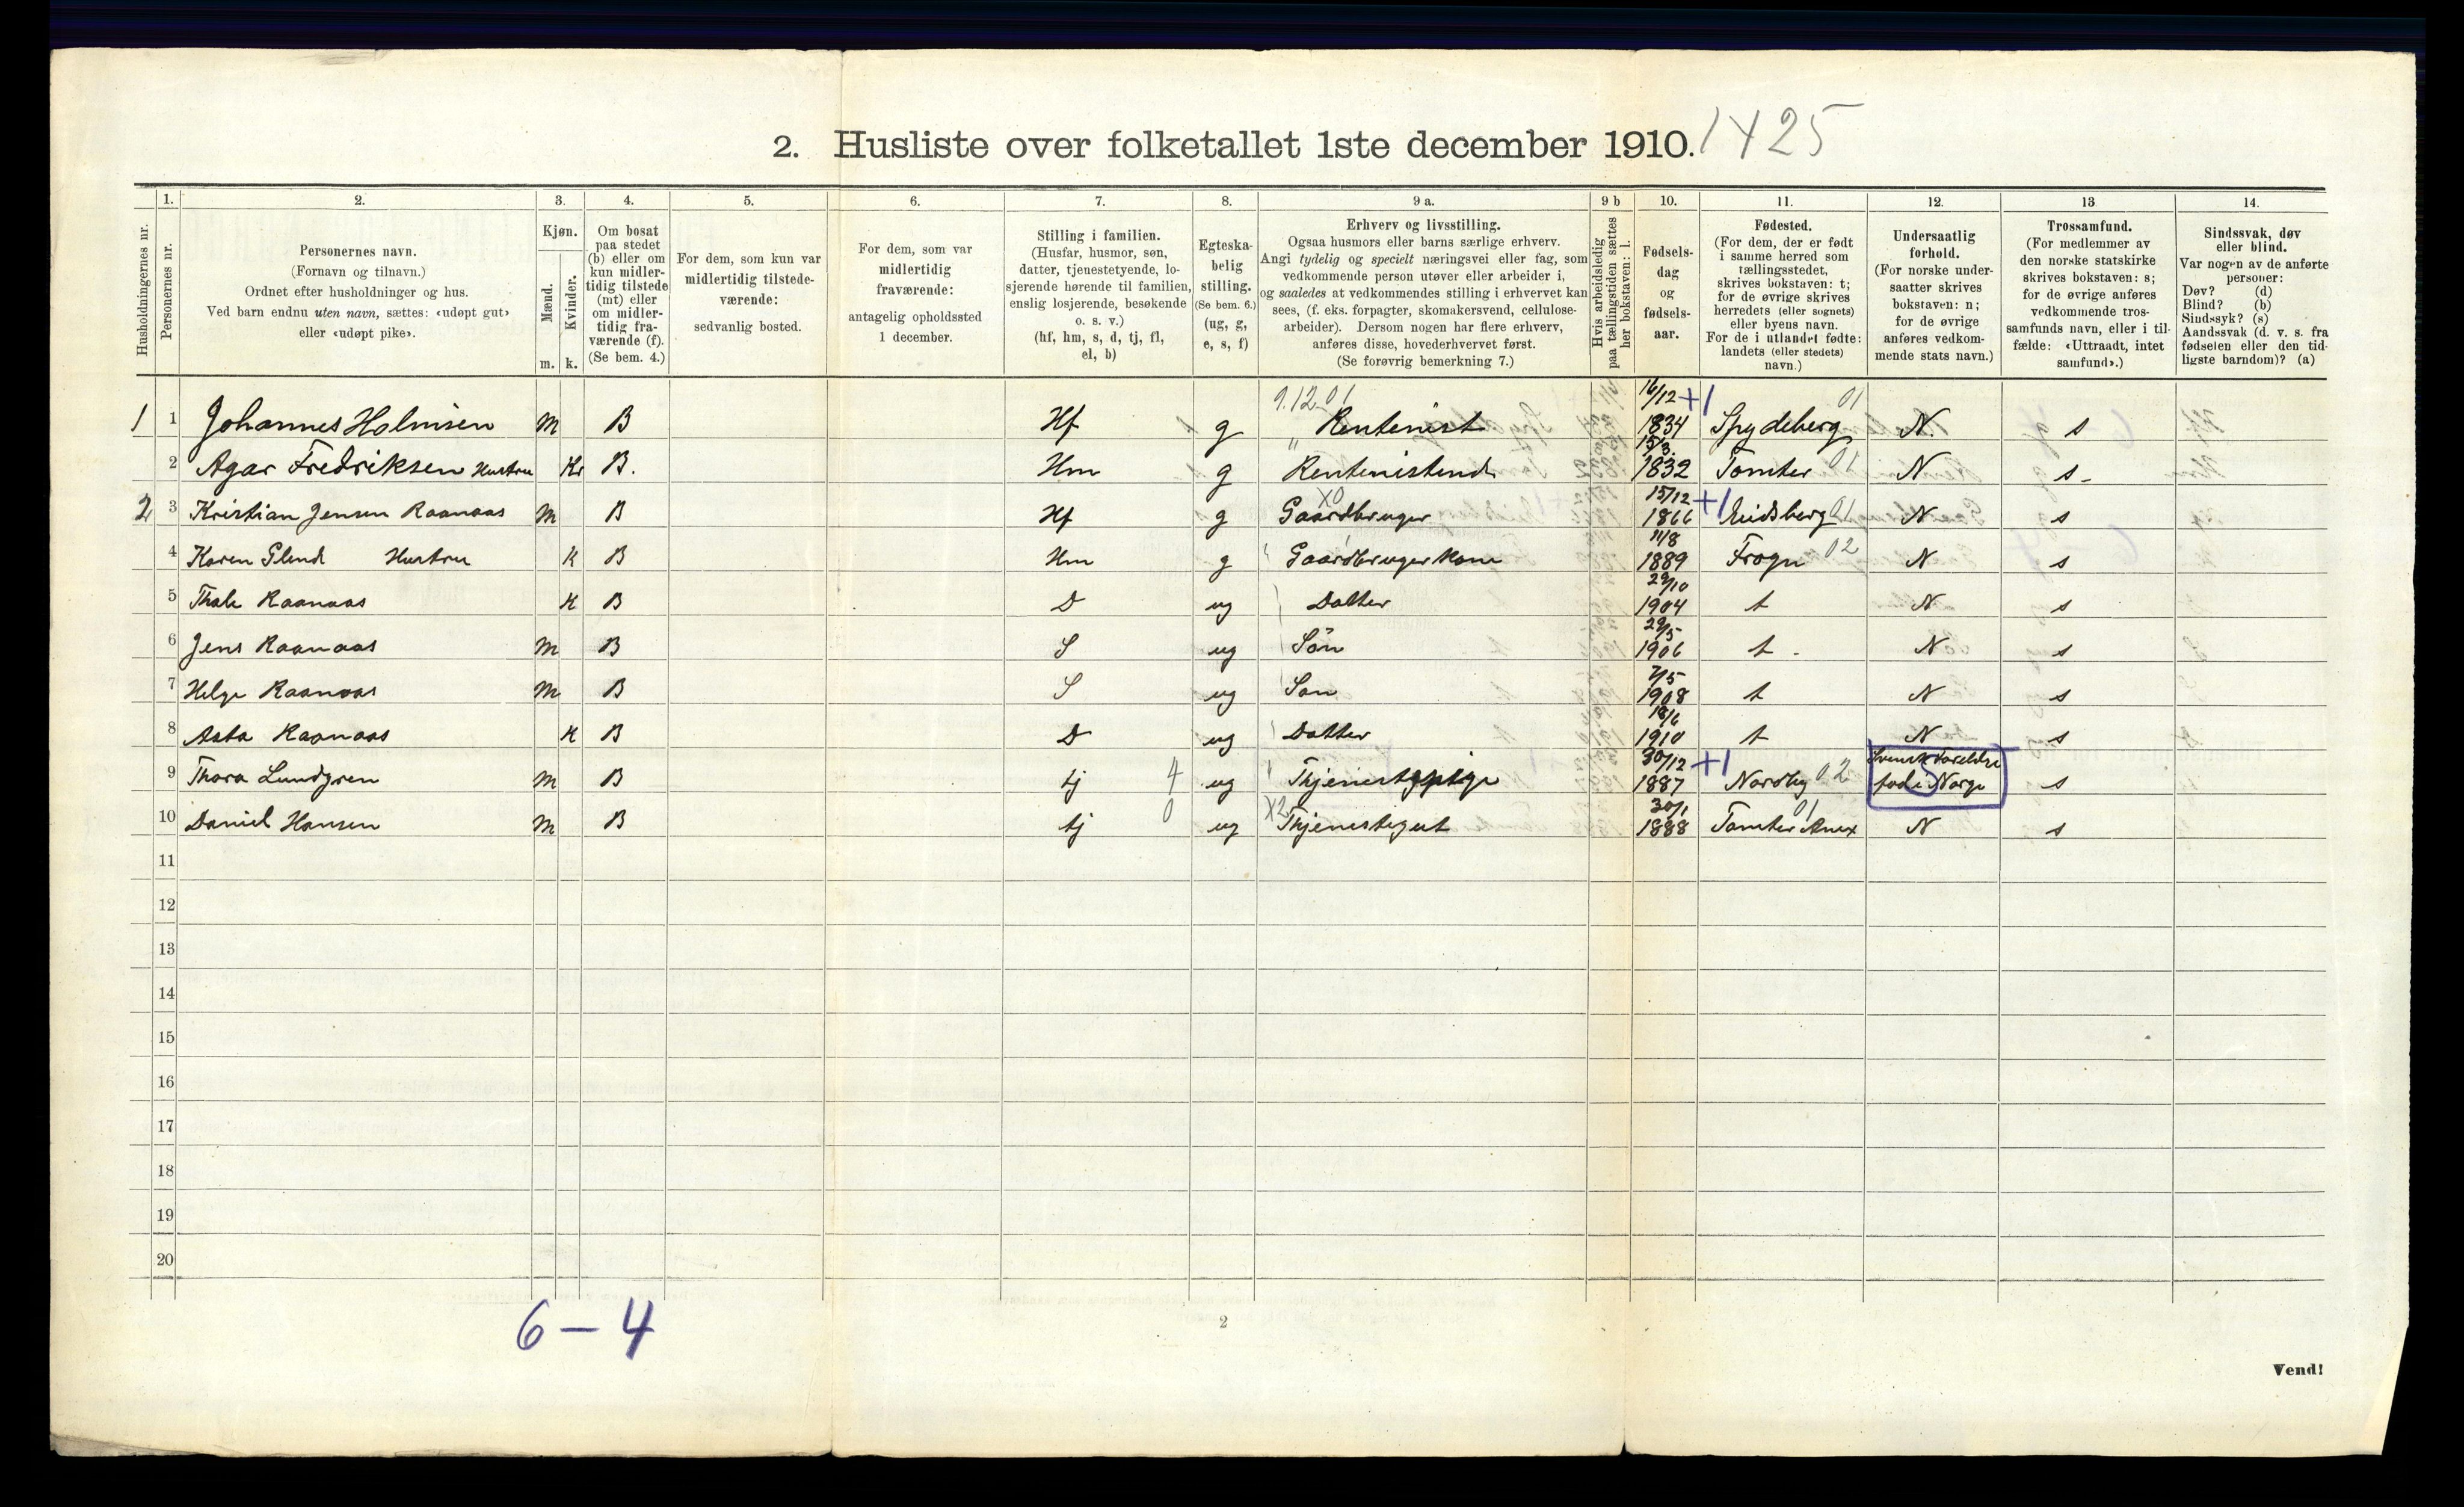 2. Husliste over folketallet 1ste december 1910. 1425
Husholdningernes nr.
1. Personernes nr.
2.
Personernes navn.
(Fornavn og tilnavn.)
Ordnet efter husholdninger og hus.
Ved barn endnu uten navn, sættes: «udøpt gut»
eller «udøpt pike».
3.
Kjøn.
Mænd. m.
Kvinder. k.
4.
Om bosat
paa stedet
(b) eller om
kun midler-
tidig tilstede
(mt) eller
om midler-
tidig fra-
værende (f).
(Se bem. 4.)
5.
For dem, som kun var
midlertidig tilstede-
værende:
sedvanlig bosted.
6.
For dem, som var
midlertidig
fraværende:
antagelig opholdssted
1 december.
7.
Stilling i familien.
(Husfar, husmor, søn,
datter, tjenestetyende, lo-
sjerende hørende til familien,
enslig losjerende, besøkende
o. s. v.)
(hf, hm, s, d, tj, fl,
el, b)
8.
Egteska-
belig
stilling.
(Se bem. 6.)
(ug, g,
e, s, f)
9 a.
Erhverv og livsstilling.
Ogsaa husmors eller barns særlige erhverv.
Angi tydelig og specielt næringsvei eller fag, som
vedkommende person utøver eller arbeider i,
og saaledes at vedkommendes stilling i erhvervet kan
sees, (f. eks. forpagter, skomakersvend, cellulose-
arbeider). Dersom nogen har flere erhverv,
anføres disse, hovederhvervet først.
(Se forøvrig bemerkning 7.)
9 b
Hvis arbeidsledig
paa tællingstiden sættes
her bokstaven: l.
10.
Fødsels-
dag
og
fødsels-
aar.
11.
Fødested.
(For dem, der er født
i samme herred som
tællingsstedet,
skrives bokstaven: t;
for de øvrige skrives
herredets (eller sognets)
eller byens navn.
For de i utlandet fødte:
landets (eller stedets)
navn.)
12.
Undersaatlig
forhold.
(For norske under-
saatter skrives
bokstaven: n;
for de øvrige
anføres vedkom-
mende stats navn.)
13
Trossamfund.
(For medlemmer av
den norske statskirke
skrives bokstaven: s;
for de øvrige anføres
vedkommende tros-
samfunds navn, eller i til-
fælde: «Uttraadt, intet
samfund».)
14.
Sindssvak, døv
eller blind.
Var nogen av de anførte
personer:
Døv? (d)
Blind? (b)
Sindssyk? (s)
Aandssvak (d. v. s. fra
fødselen eller den tid-
ligste barndom)? (a)
9.12.01 16/12 +1 01
1 1 Johannes Holmsen m B Hf g Rentenist 1834 Spydeberg N. s
" 15/3.
2 Agar Fredriksen Hustru Kr B. Hm g Rentenistend 1832 Tomter 01 N s -
X0 15/12 +1
2 3 Kristian Jensen Raanaas m B Hf g Gaardbruger 1866 Eidsberg 01 N s
11/8
4 Karen Glend Hustru K B Hm g Gaardbruger Kone 1889 Frogn 02 N s
29/10
5 Thale Raanaas K B D ug Datter 1904 t N s
29/5
6 Jens Raanaas m B S ug Sön 1906 t - N s
7/5
7 Helge Raanaas m B S ug Søn 1908 t N s
18/6
8 Asta Raanaas K B D ug Datter 1910 t N s
30/12 +1 Svensk Foreldre
9 Thora Lundgren m B tj 4 ug Thjenestepige 1887 Nordby 02 fød i Norge S s
30/1 01
10 Daniel Hansen m B tj 0 ug X2 Thjenestegut 1888 Tomter Anex N s
11
12
13
14
15
16
17
18
19
20
6 – 4
2
Vend!